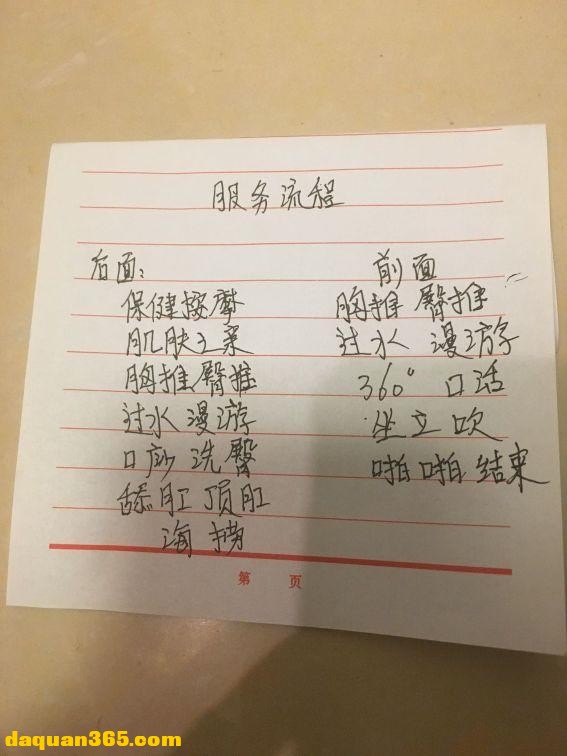 服务流程
后面:
保健按摩
肌肤之亲
胸推臀推
过水漫游
口吵洗臀
舔肛顶肛
海捞
前面
胸推臀推
过水 漫游
360° 口活
坐立吹
啪啪结束
第 页
daquan365.com